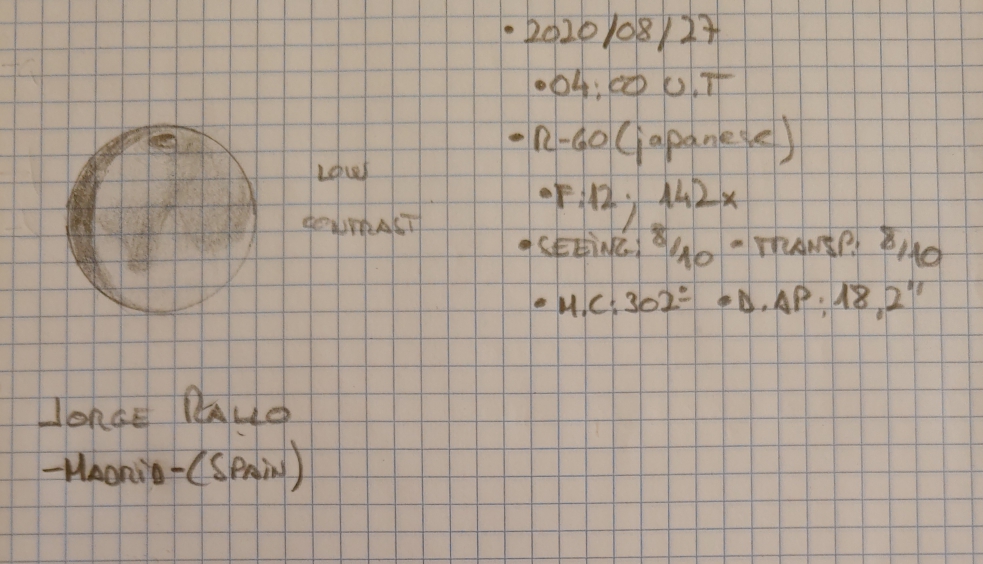 • 2020/08/27
• 04:00 U.T
• R-60 (japanese)
• F:12; 142x
• SEEING: 8/10 • TRANSP: 8/10
• M.C: 302º • D.AP: 18,2"
LOW
CONTRAST
JORGE
-MADRID-(SPAIN)